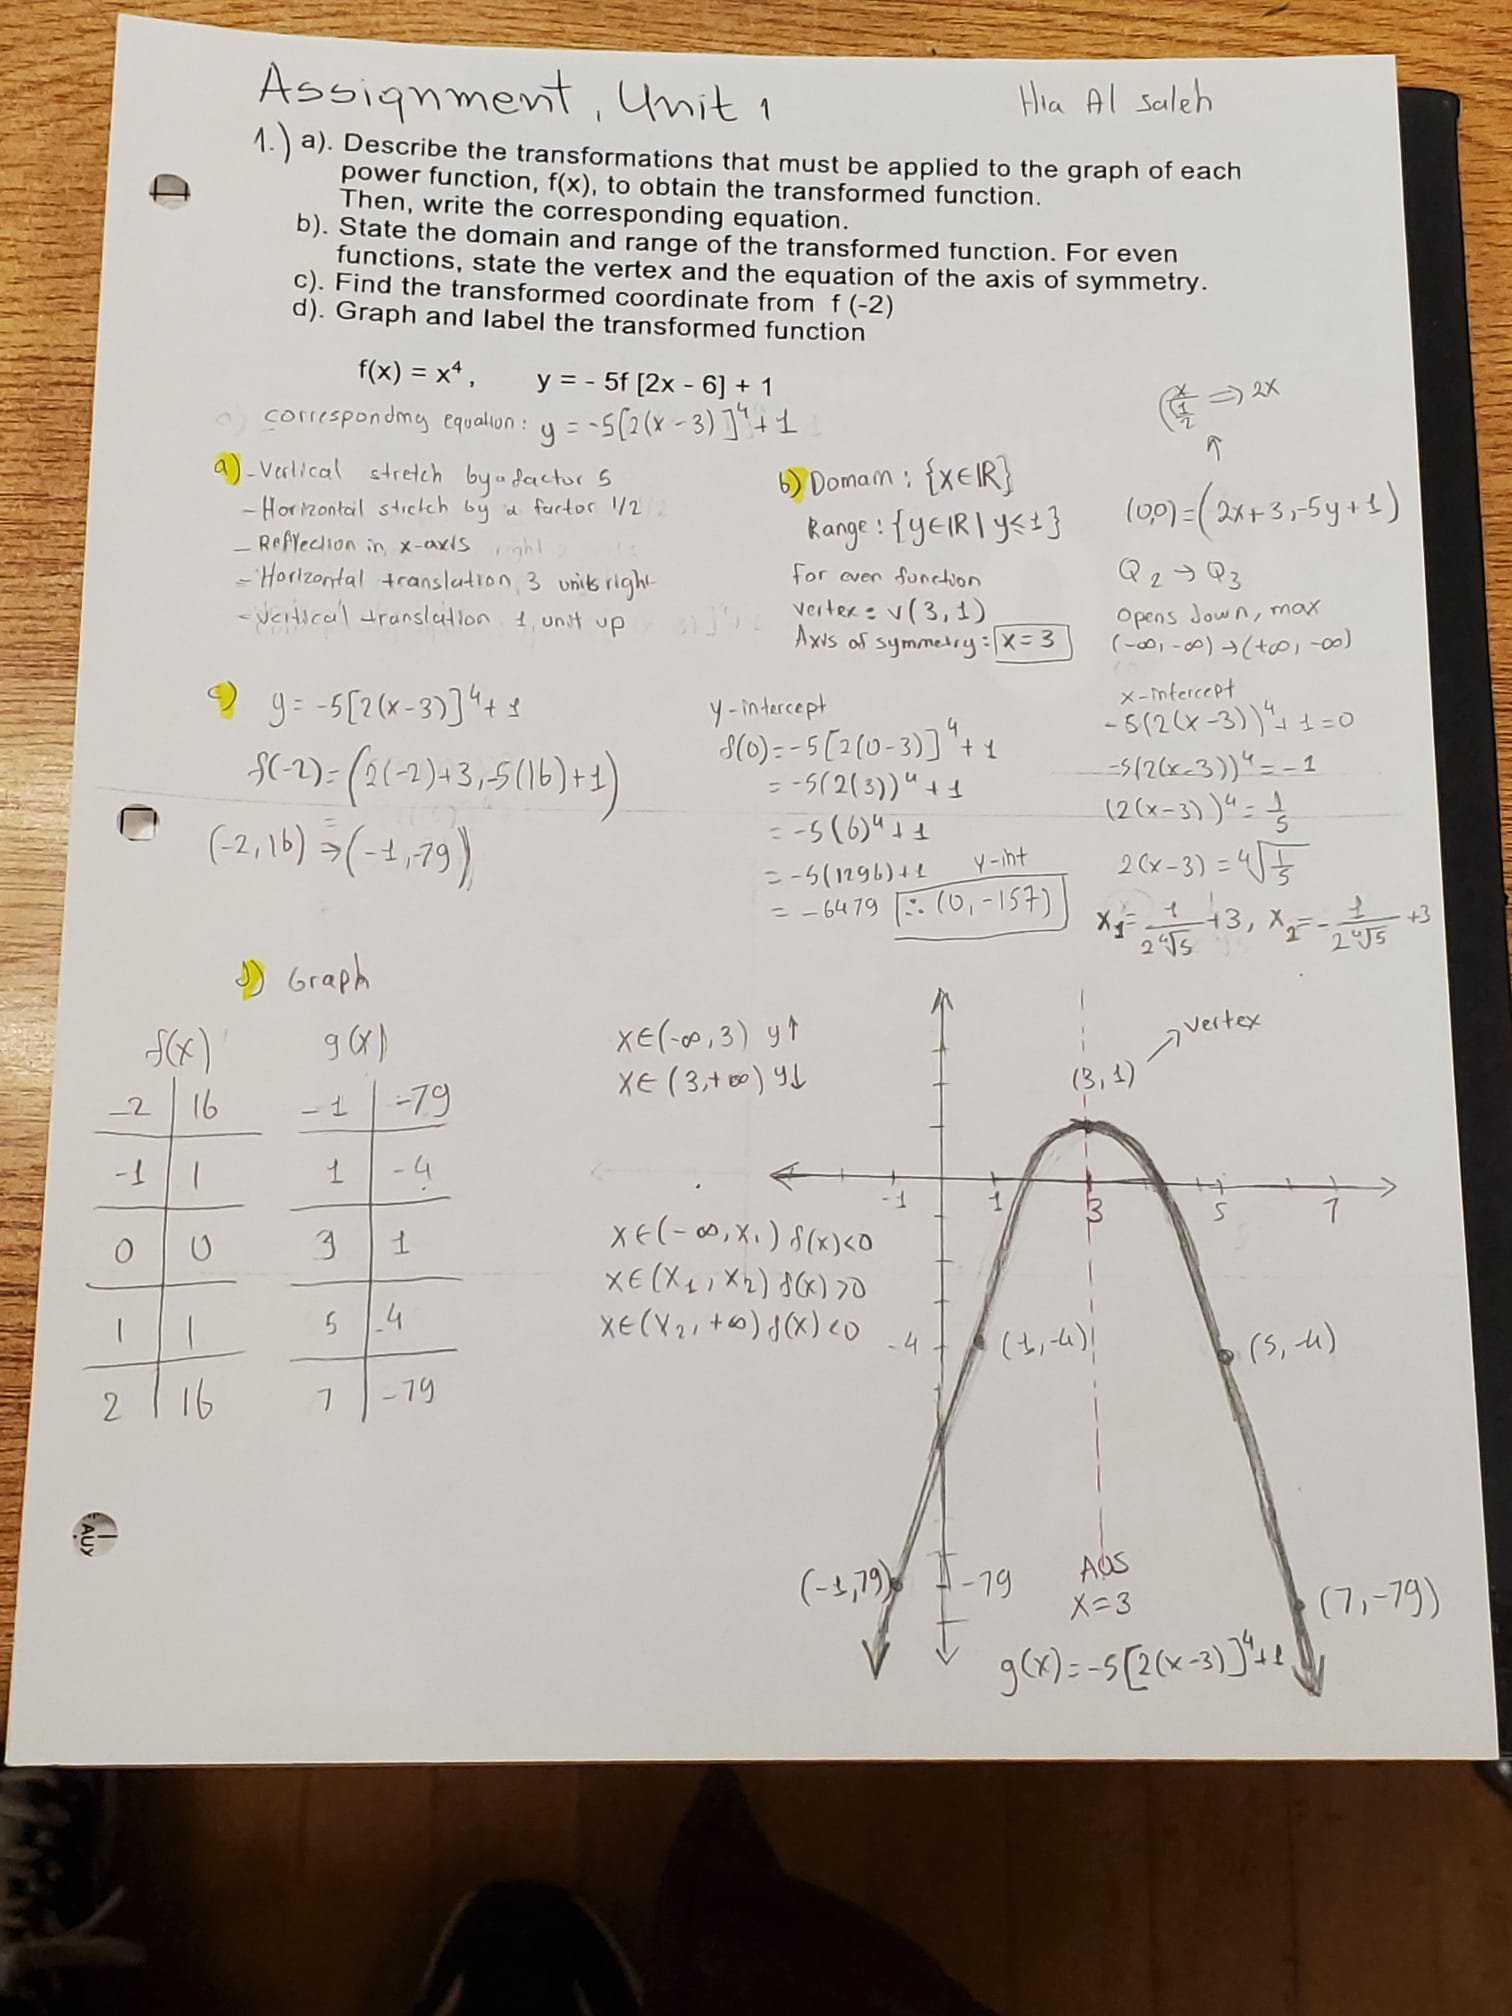 Assignment, Unit 1
Hia Al saleh
1.) a). Describe the transformations that must be applied to the graph of each
power function, f(x), to obtain the transformed function.
Then, write the corresponding equation.
b). State the domain and range of the transformed function. For even
functions, state the vertex and the equation of the axis of symmetry.
c). Find the transformed coordinate from f (-2)
d). Graph and label the transformed function
f(x) = x⁴, y = - 5f [2x - 6] + 1
a) corresponding equation: y = -5[2(x-3)]⁴+1
a) - Vertical stretch by a factor 5
- Horizontal stretch by a factor 1/2
- Reflection in x-axis
- Horizontal translation 3 units right
- Vertical translation 1 unit up
b) Domain: {x∈ℝ}
Range: {y∈ℝ | y≤1}
for even function
vertex = v(3,1)
Axis of symmetry = x=3
(x/(1/2) ⇒ 2x
↑
(0,0)=(2x+3,-5y+1)
Q2 → Q3
opens down, max
(-∞,-∞)→(+∞,-∞)
c) y = -5[2(x-3)]⁴+1
f(-2)=(2(-2)+3,-5(16)+1)
(-2,16) ⇒ (-1,-79)
y-intercept
f(0)=-5[2(0-3)]⁴+1
= -5(2(3))⁴+1
= -5(6)⁴+1
= -5(1296)+1 y-int
= -6479 ∴ (0,-157)
x-intercept
-5(2(x-3))⁴+1=0
-5(2(x-3))⁴=-1
(2(x-3))⁴=1/5
2(x-3)=⁴√1/5
x₁=1/2⁴√5+3, x₂=-1/2⁴√5+3
d) Graph
f(x) g(x)
-2 16 -1 -79
-1 1 1 -4
0 0 3 1
1 1 5 -4
2 16 7 -79
x∈(-∞,3) y↑
x∈(3,+∞) y↓
x∈(-∞,x₁) f(x)<0
x∈(x₁,x₂) f(x)>0
x∈(x₂,+∞) f(x)<0
vertex
(3,1)
-1 1 3 5 7
-4 (1,-4) (5,-4)
(-1,79) -79 (7,-79)
AOS
x=3
g(x)=-5[2(x-3)]⁴+1
AUX